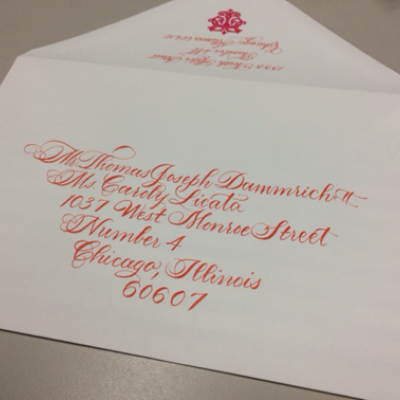 Mr. Thomas Joseph Dammrich II
Ms. Caroly Licata
1037 West Monroe Street
Number 4
Chicago, Illinois
60607